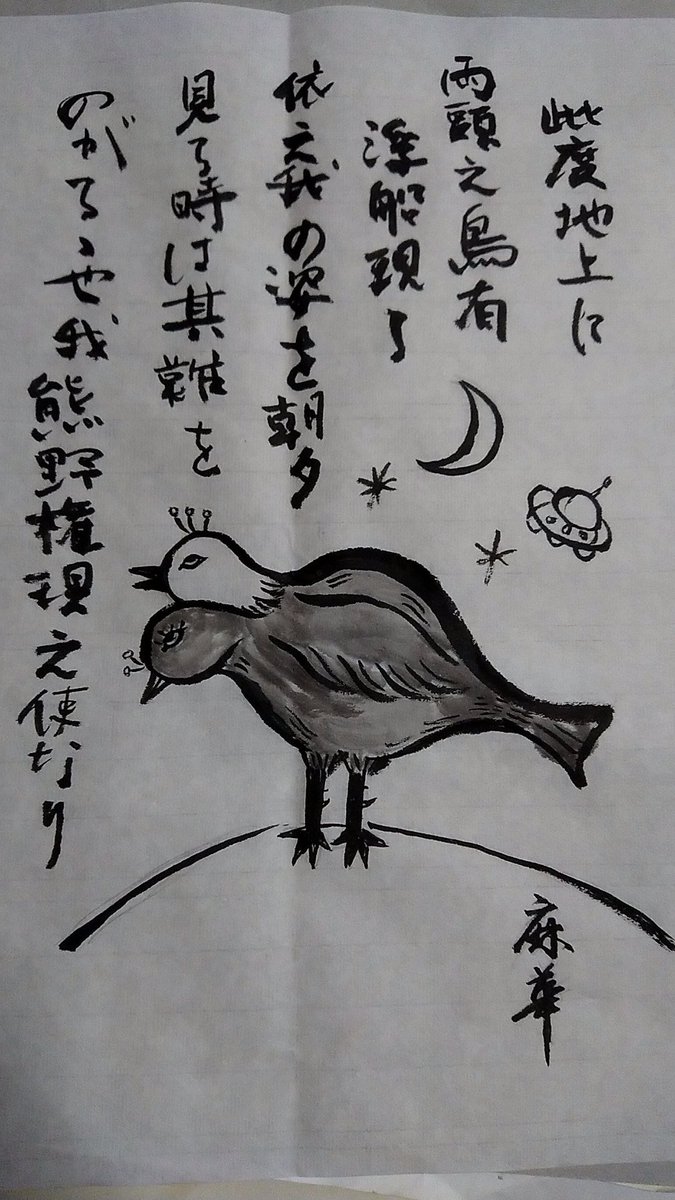 此度地上に
両頭之鳥有
浮船現る
依之我の姿を朝夕
見る時は其難を
のがるゝ也我熊野権現之使なり
麻華